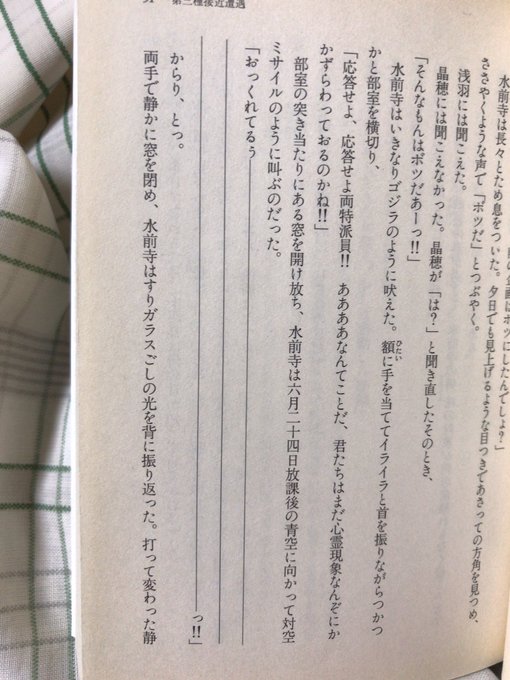 第三種接近遭遇
の企画はボツにしたんでしょ?」
水前寺は長々とため息をついた。夕日でも見上げるような目つきであさっての方角を見つめ、
ささやくような声で「ボツだ」とつぶやく。
浅羽には聞こえた。
晶穂には聞こえなかった。晶穂が「は?」と聞き直したそのとき、
「そんなもんはボツだあーっ!!」
水前寺はいきなりゴジラのように吠えた。額に手を当ててイライラと首を振りながらつかつ
かと部室を横切り、
「応答せよ、応答せよ両特派員!! ああああなんてことだ、君たちはまだ心霊現象なんぞにか
かずらわっておるのかね!!」
部室の突き当たりにある窓を開け放ち、水前寺は六月二十四日放課後の青空に向かって対空
ミサイルのように叫ぶのだった。
「おっくれてるぅ――――――――――――――――――――
――――――――――――――――――――――――――――――
――――――――――――――――――――――――――――っ!!」
からり、とっ。
両手で静かに窓を閉め、水前寺はすりガラスごしの光を背に振り返った。打って変わった静